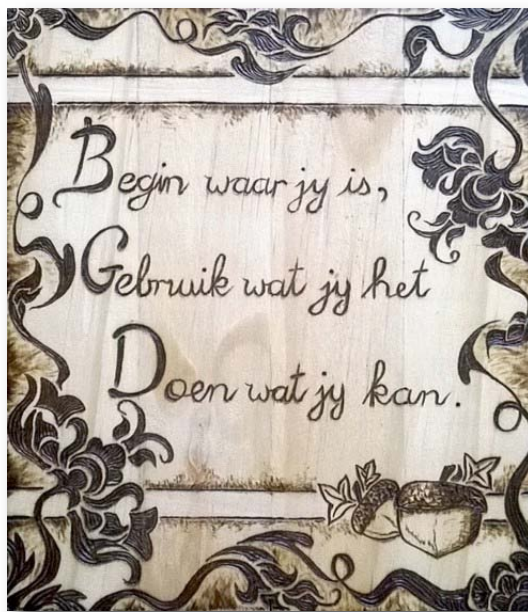 Begin waar jy is,
Gebruik wat jy het
Doen wat jy kan.